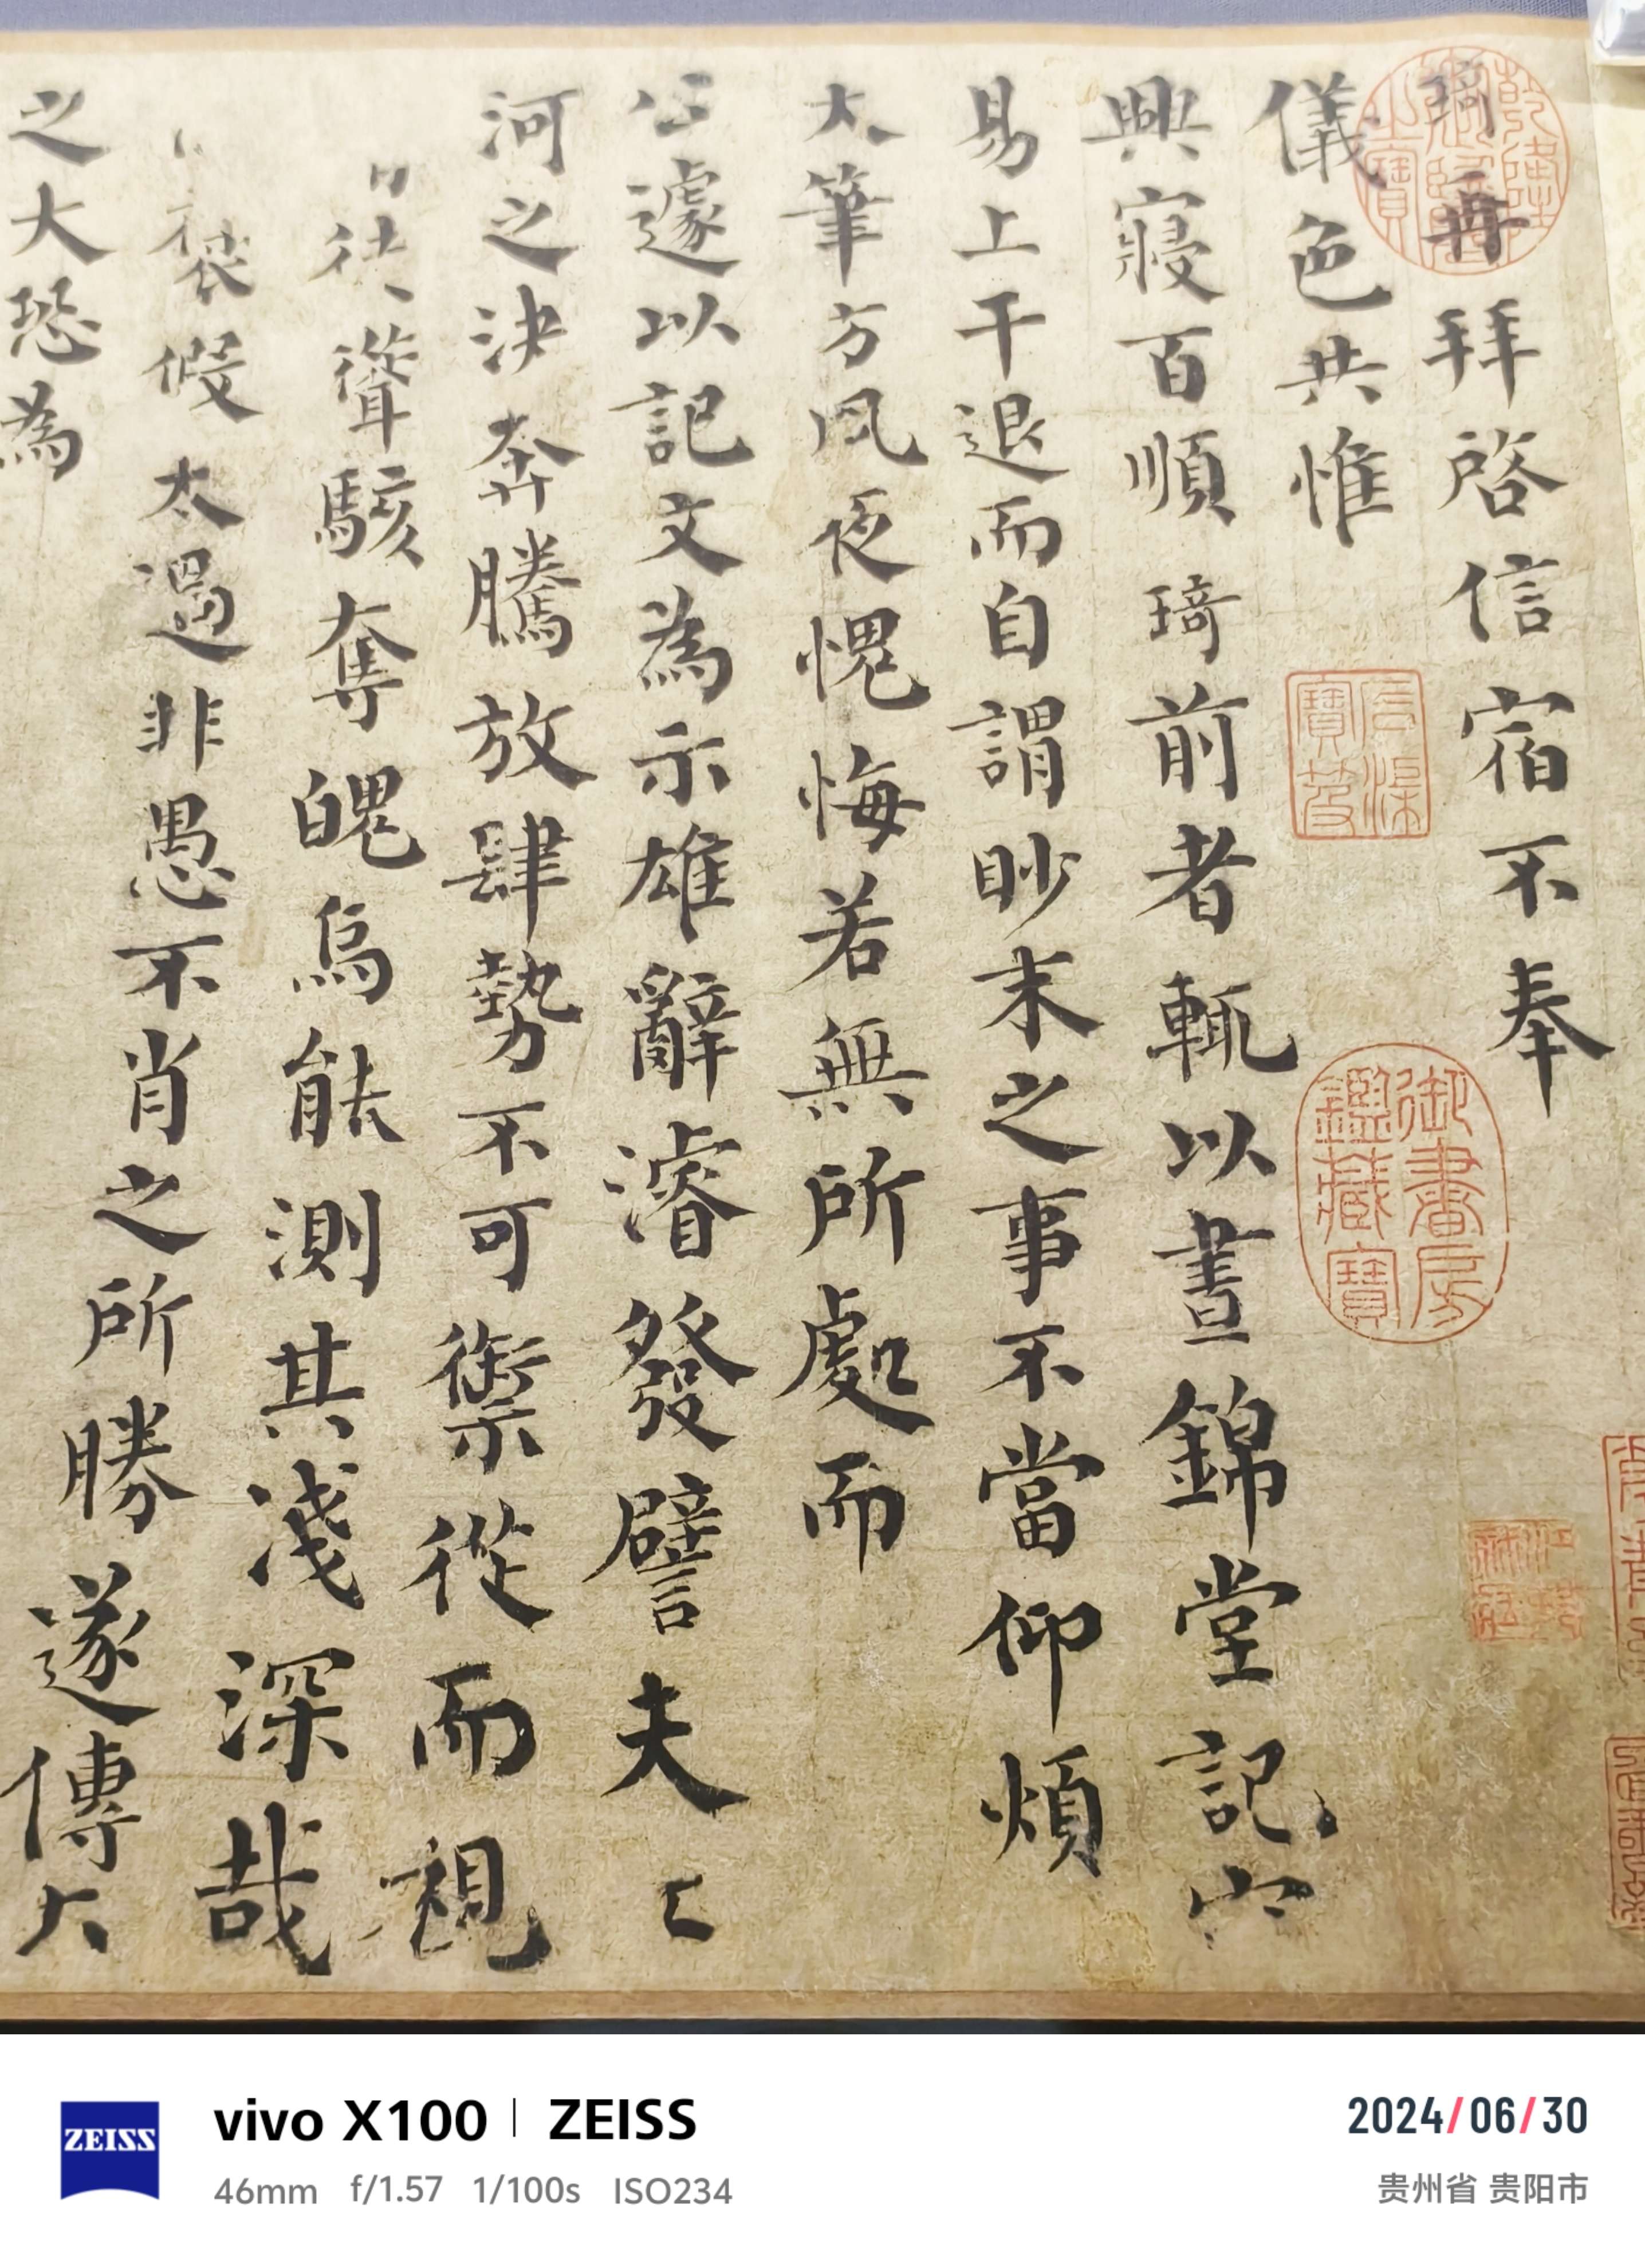 琦再拜啓信宿不奉
儀色共惟
興寢百順琦前者輒以晝錦堂記
易上干退而自謂眇末之事不當仰煩
大筆方夙夜愧悔若無所處而
公遽以記文為示雄辭濬發譬夫
河之決奔騰放肆勢不可禦從而視
徒聳駭奪魄烏能測其淺深哉
襃假太過非愚不肖之所勝遂傳
之大恐為
乾隆御覽之寶
御書房鑑藏寶
ZEISS
vivo X100 | ZEISS
46mm f/1.57 1/100s ISO234
2024/06/30
贵州省 贵阳市